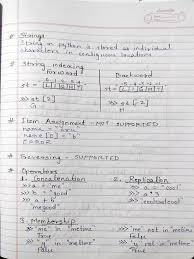 # Strings
String in python is stored as individual
characters in contiguous locations
# String indexing
forward Backward
0 1 2 3 4
st = L I G H T
st =
>> st [2] >> st [-2]
G H
# Item Assignment - NOT SUPPORTED
name =
name [0] =
ERROR
# Traversing - SUPPORTED
# Operators
1. Concatenation 2. Replication
>> a = "me" >> a = "cool"
>> b = "good" >> a * 2
>> a + b "coolcool"
"megood"
3. Membership
>> "me" in "metime" "me" not in "metime"
True False
>> "y" in "metime" "y" not in "metime"
False True